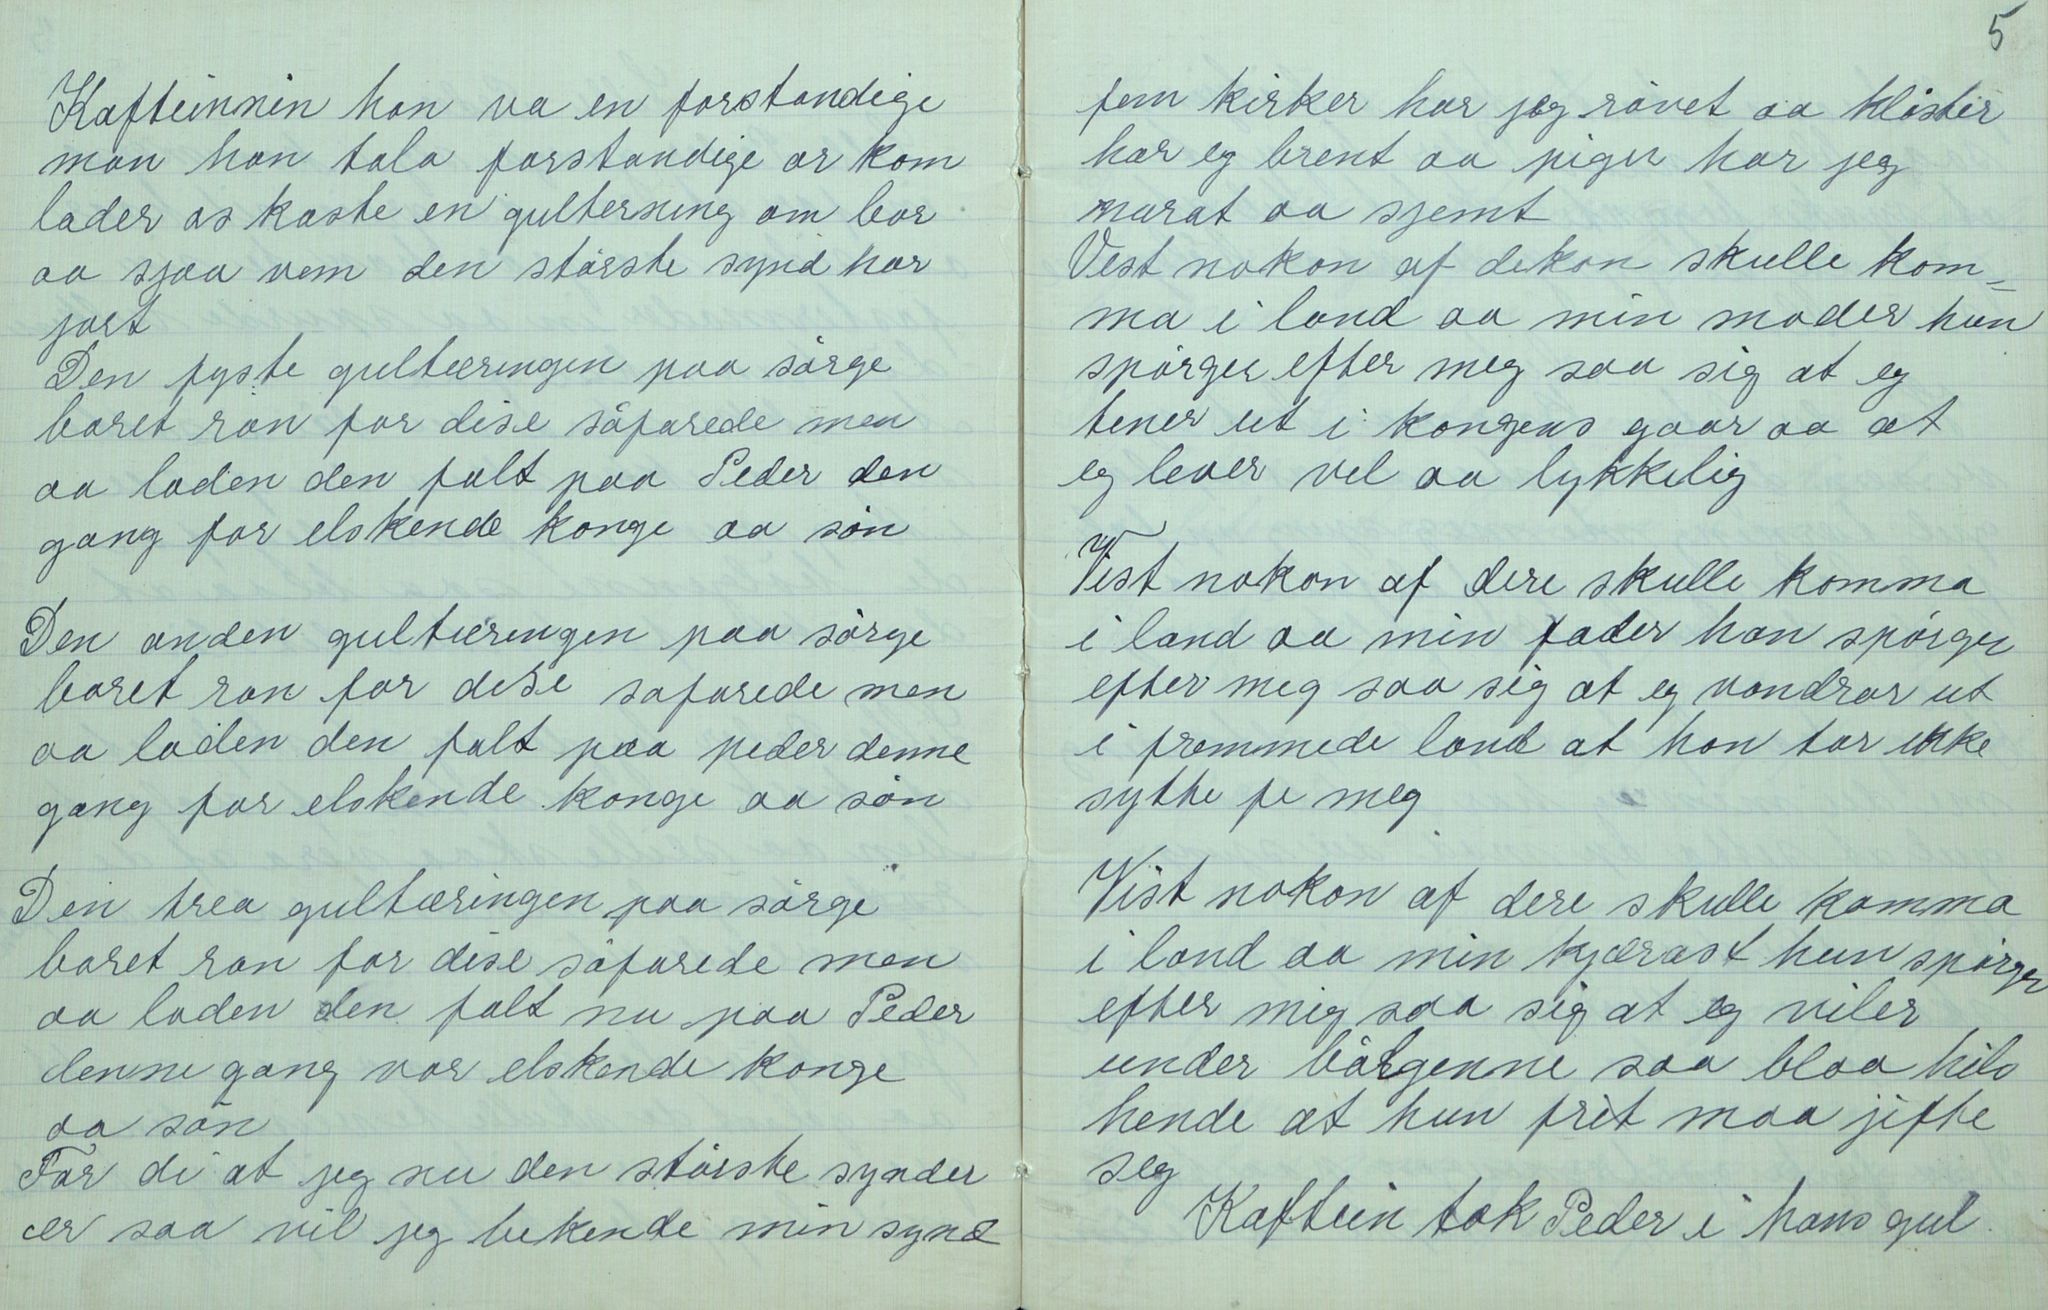 Kafteinnin han va en forstandige
man han tala forstandige or kom
lader os kaste en gulterning om bor
aa sjaa vem den störste synd har
jort
Den fyste gultæringen paa sörge
boret ran for dise söfarede men
aa loden den falt paa Peder den
gang for elskende konge aa sön
Den anden gultæringen paa sörge
boret ran for dise safarede men
aa loden den falt paa peder denne
gang for elskende konge aa sön
Den trea gultæringen paa sörge
boret ran for dise söfarede men
aa loden den falt nu paa Peder
denne gang vor elskende konge
aa sön
For di at jeg nu den störste synder
er saa vil jeg bekende min synd
5
fem kirker har jeg rövet aa klöster
har eg brent aa piger har jeg
narat aa sjemt
Vest nokon af dekon skulle kom=
ma i land aa min moder hun
spörger efter meg saa sig at eg
tener ut i kongens gaar aa at
eg lever vel aa lykkelig
Vist nokon af dere skulle komma
i land aa min fader han spörger
efter meg saa sig at eg vandrar ut
i fremmede land at han tar ikke
sythe fe meg
Vist nokon af dere skulle komma
i land aa min kjærast hun spörger
efter mig saa sig at eg viler
under bölgenne saa blaa hils
hende at hun frit maa jifte
seg
Kaftein tok Peder i hans gul